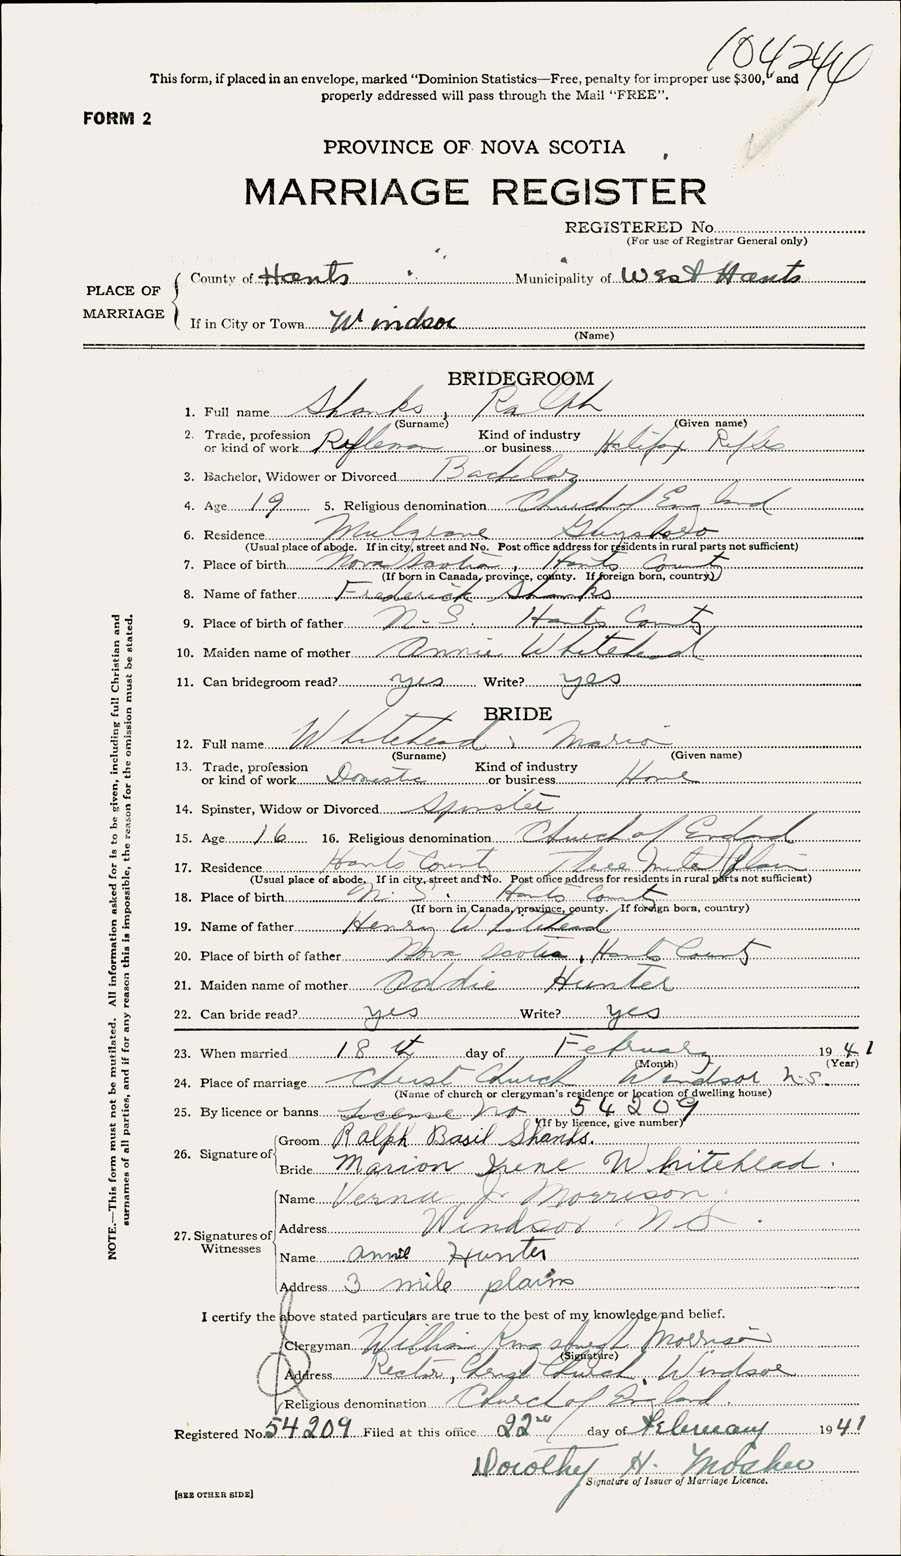 104244
This form, if placed in an envelope, marked "Dominion Statistics—Free, penalty for improper use $300," and
properly addressed will pass through the Mail "FREE".
FORM 2
PROVINCE OF NOVA SCOTIA
MARRIAGE REGISTER
REGISTERED No.
(For use of Registrar General only)
PLACE OF MARRIAGE
County of Hants Municipality of West Hants
If in City or Town Windsor
(Name)
BRIDEGROOM
1. Full name Shanks, Ralph
(Surname) (Given name)
2. Trade, profession or kind of work Rifleman Kind of industry or business Halifax Rifles
3. Bachelor, Widower or Divorced Bachelor
4. Age 19 5. Religious denomination Church of England
6. Residence Mulgrave Guysboro
(Usual place of abode. If in city, street and No. Post office address for residents in rural parts not sufficient)
7. Place of birth Nova Scotia, Hants County
(If born in Canada, province, county. If foreign born, country)
8. Name of father Frederick Shanks
9. Place of birth of father N.S. Hants County
10. Maiden name of mother Annie Whitehead
11. Can bridegroom read? yes Write? yes
BRIDE
12. Full name Whitehead, Marion
(Surname) (Given name)
13. Trade, profession or kind of work Domestic Kind of industry or business Home
14. Spinster, Widow or Divorced Spinster
15. Age 16 16. Religious denomination Church of England
17. Residence Hants County Three Mile Plain
(Usual place of abode. If in city, street and No. Post office address for residents in rural parts not sufficient)
18. Place of birth N.S. Hants County
(If born in Canada, province, county. If foreign born, country)
19. Name of father Henry Whitehead
20. Place of birth of father Nova Scotia, Hants County
21. Maiden name of mother Addie Hunter
22. Can bride read? yes Write? yes
23. When married 18th day of February 1941
(Month) (Year)
24. Place of marriage Christ Church Windsor N.S.
(Name of church or clergyman's residence or location of dwelling house)
25. By licence or banns License No 54209
(If by licence, give number)
26. Signature of
Groom Ralph Basil Shanks.
Bride Marion Irene Whitehead.
27. Signatures of Witnesses
Name Verna J. Morrison
Address Windsor N.S.
Name Annie Hunter
Address 3 mile plains
I certify the above stated particulars are true to the best of my knowledge and belief.
Clergyman William Kingsburgh Morrison
(Signature)
Address Rector, Christ Church, Windsor
Religious denomination Church of England.
Registered No. 54209 Filed at this office 22nd day of February 1941
Dorothy H. Mosher
Signature of Issuer of Marriage Licence.
[SEE OTHER SIDE]
NOTE.—This form must not be mutilated. All information asked for is to be given, including full Christian and
surnames of all parties, and if for any reason this is impossible, the reason for the omission must be stated.